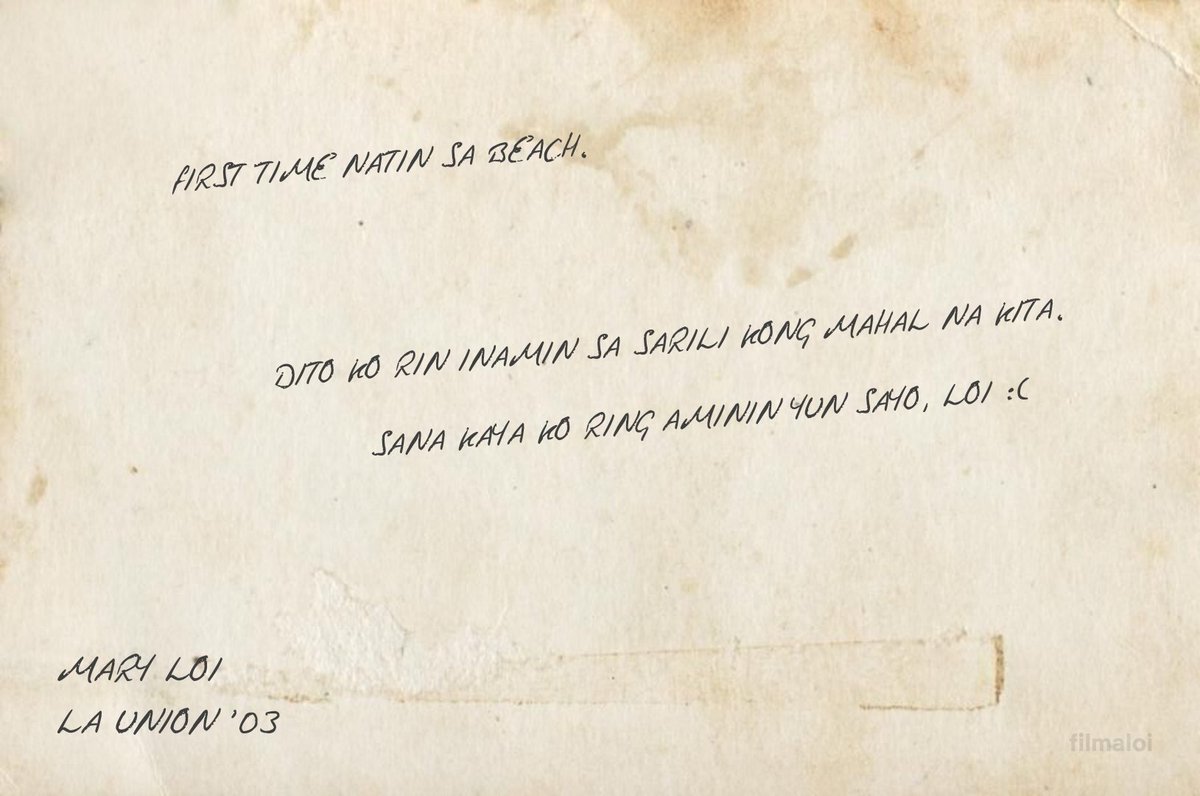 FIRST TIME NATIN SA BEACH.
DITO KO RIN INAMIN SA SARILI KONG MAHAL NA KITA.
SANA KAYA KO RING AMININ YUN SAYO, LOI :(
MARY LOI
LA UNION '03
filmaloi